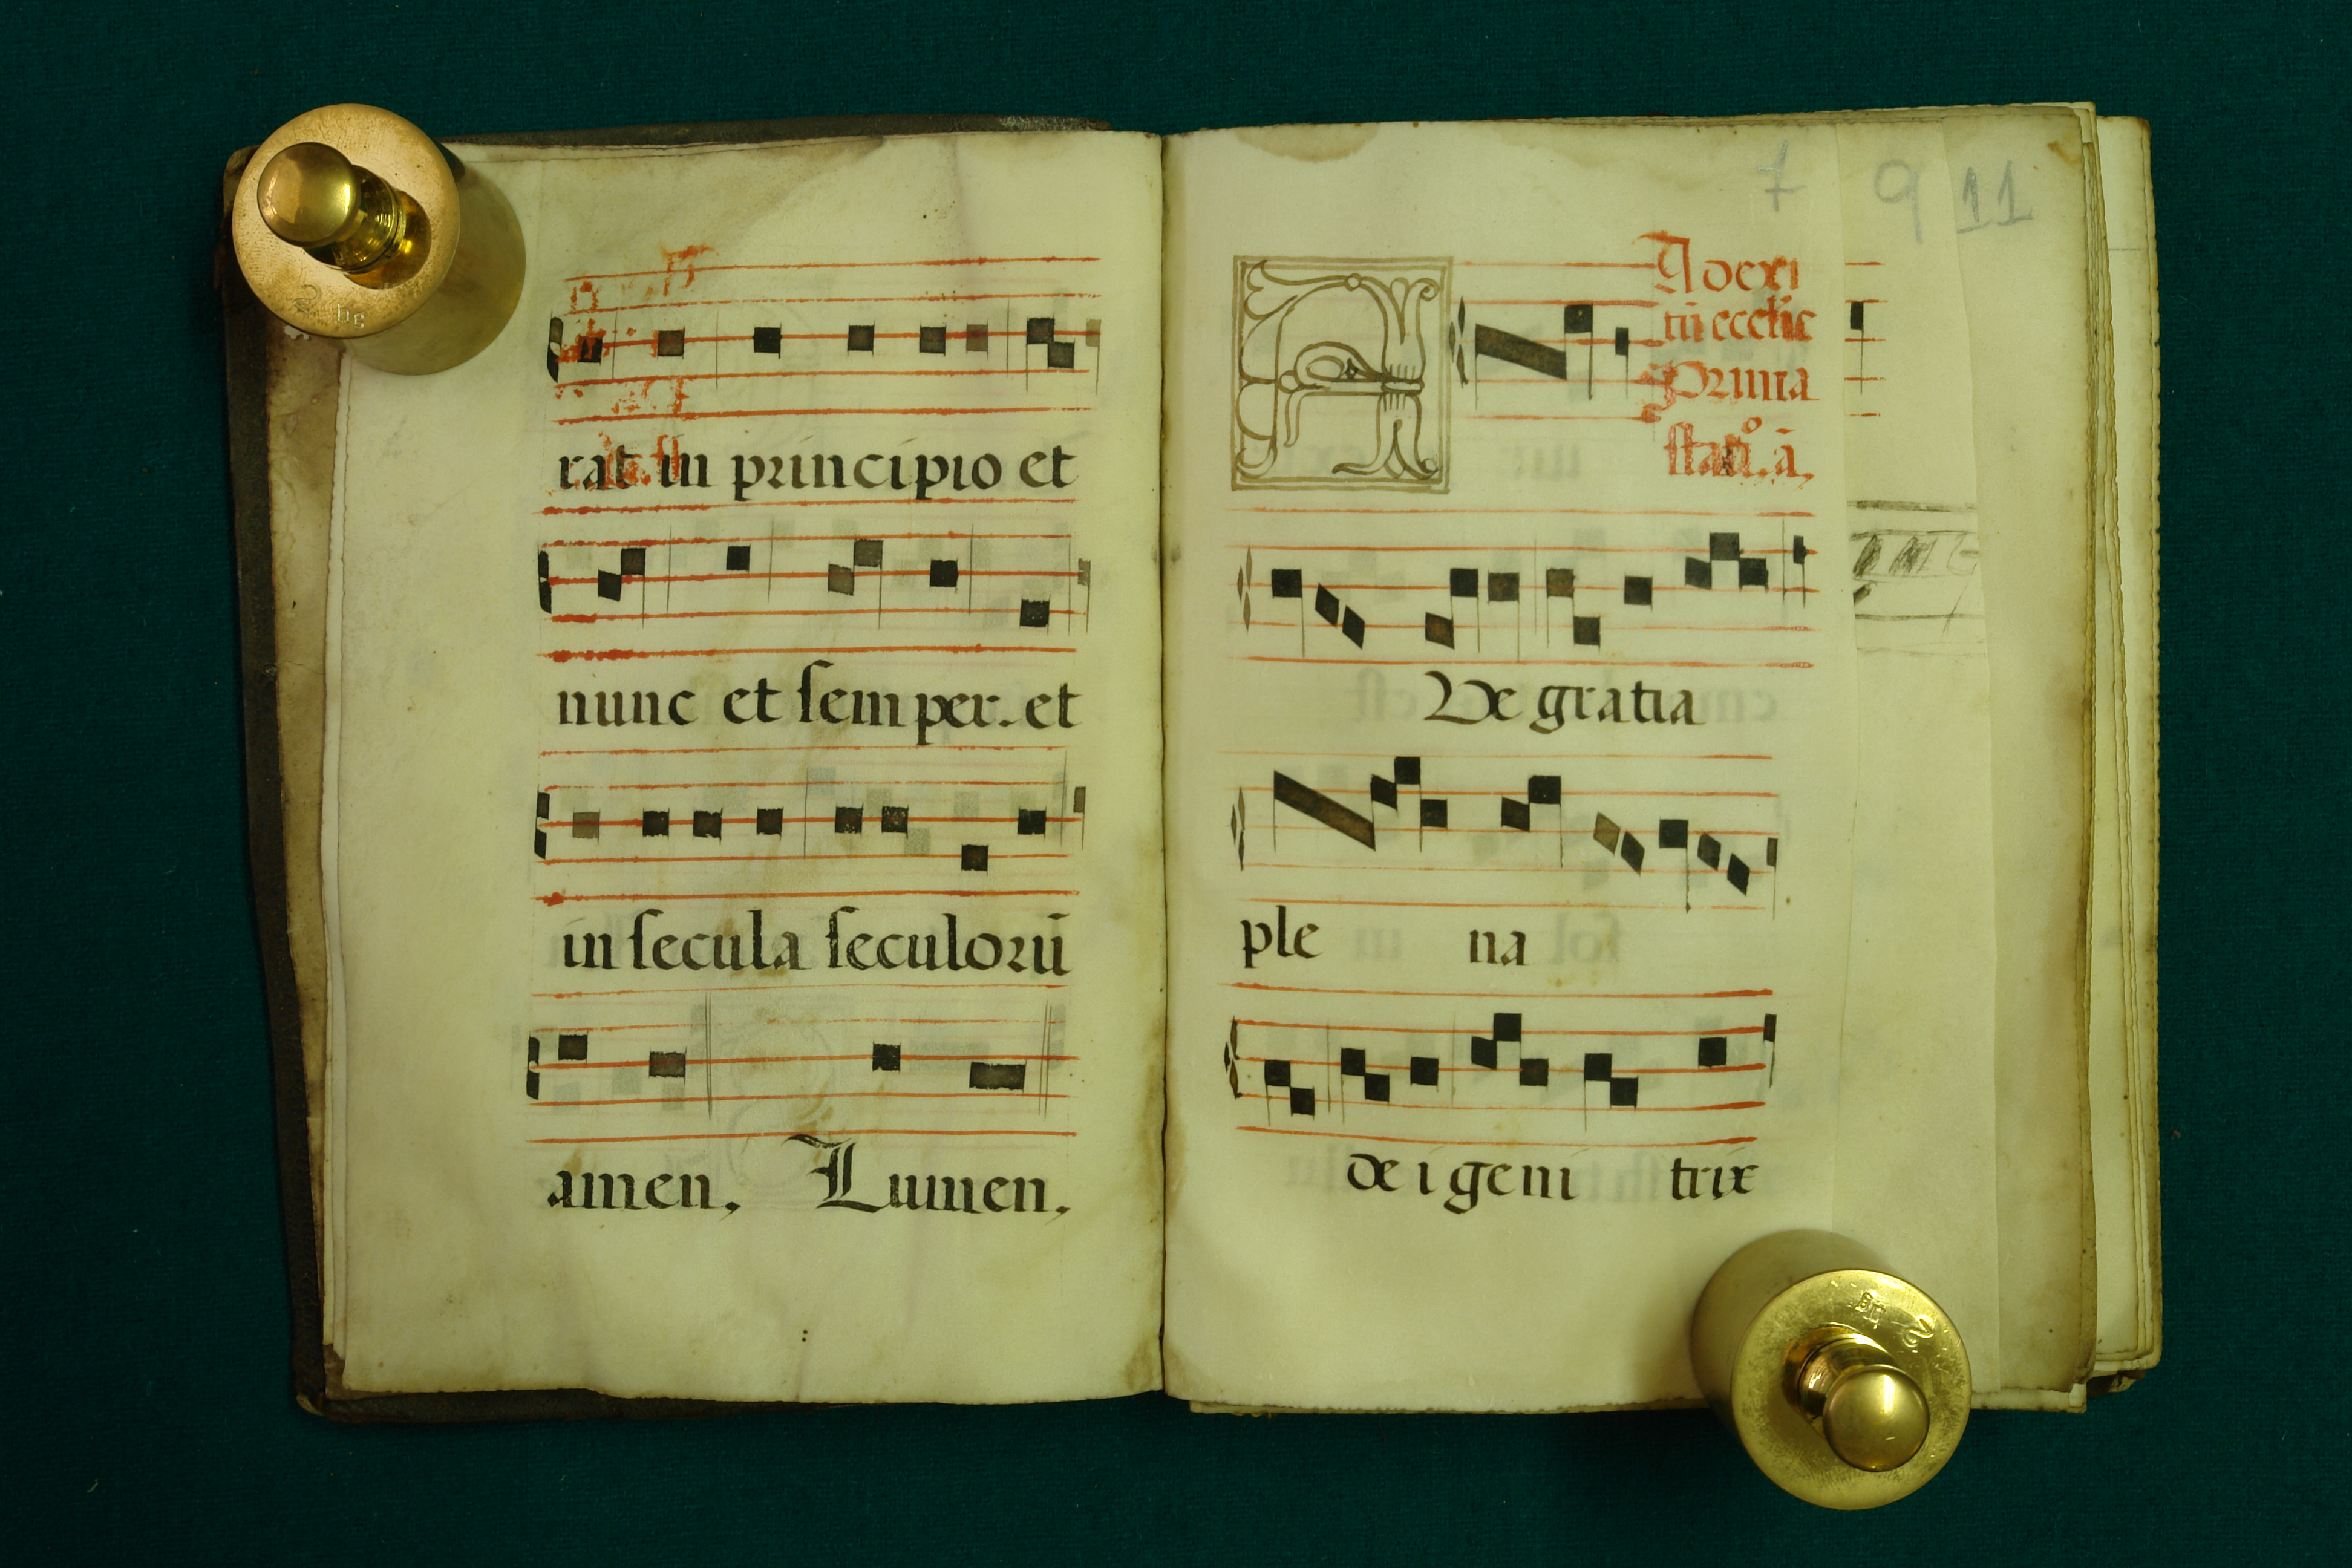 rat in principio et
nunc et ſemper. et
in ſecula ſeculorū
amen, Lumen,
7
9
11
A
Ad exi
tū eccłie
Prima
statio. ā,
Ve gratia
ple na
de i geni trix